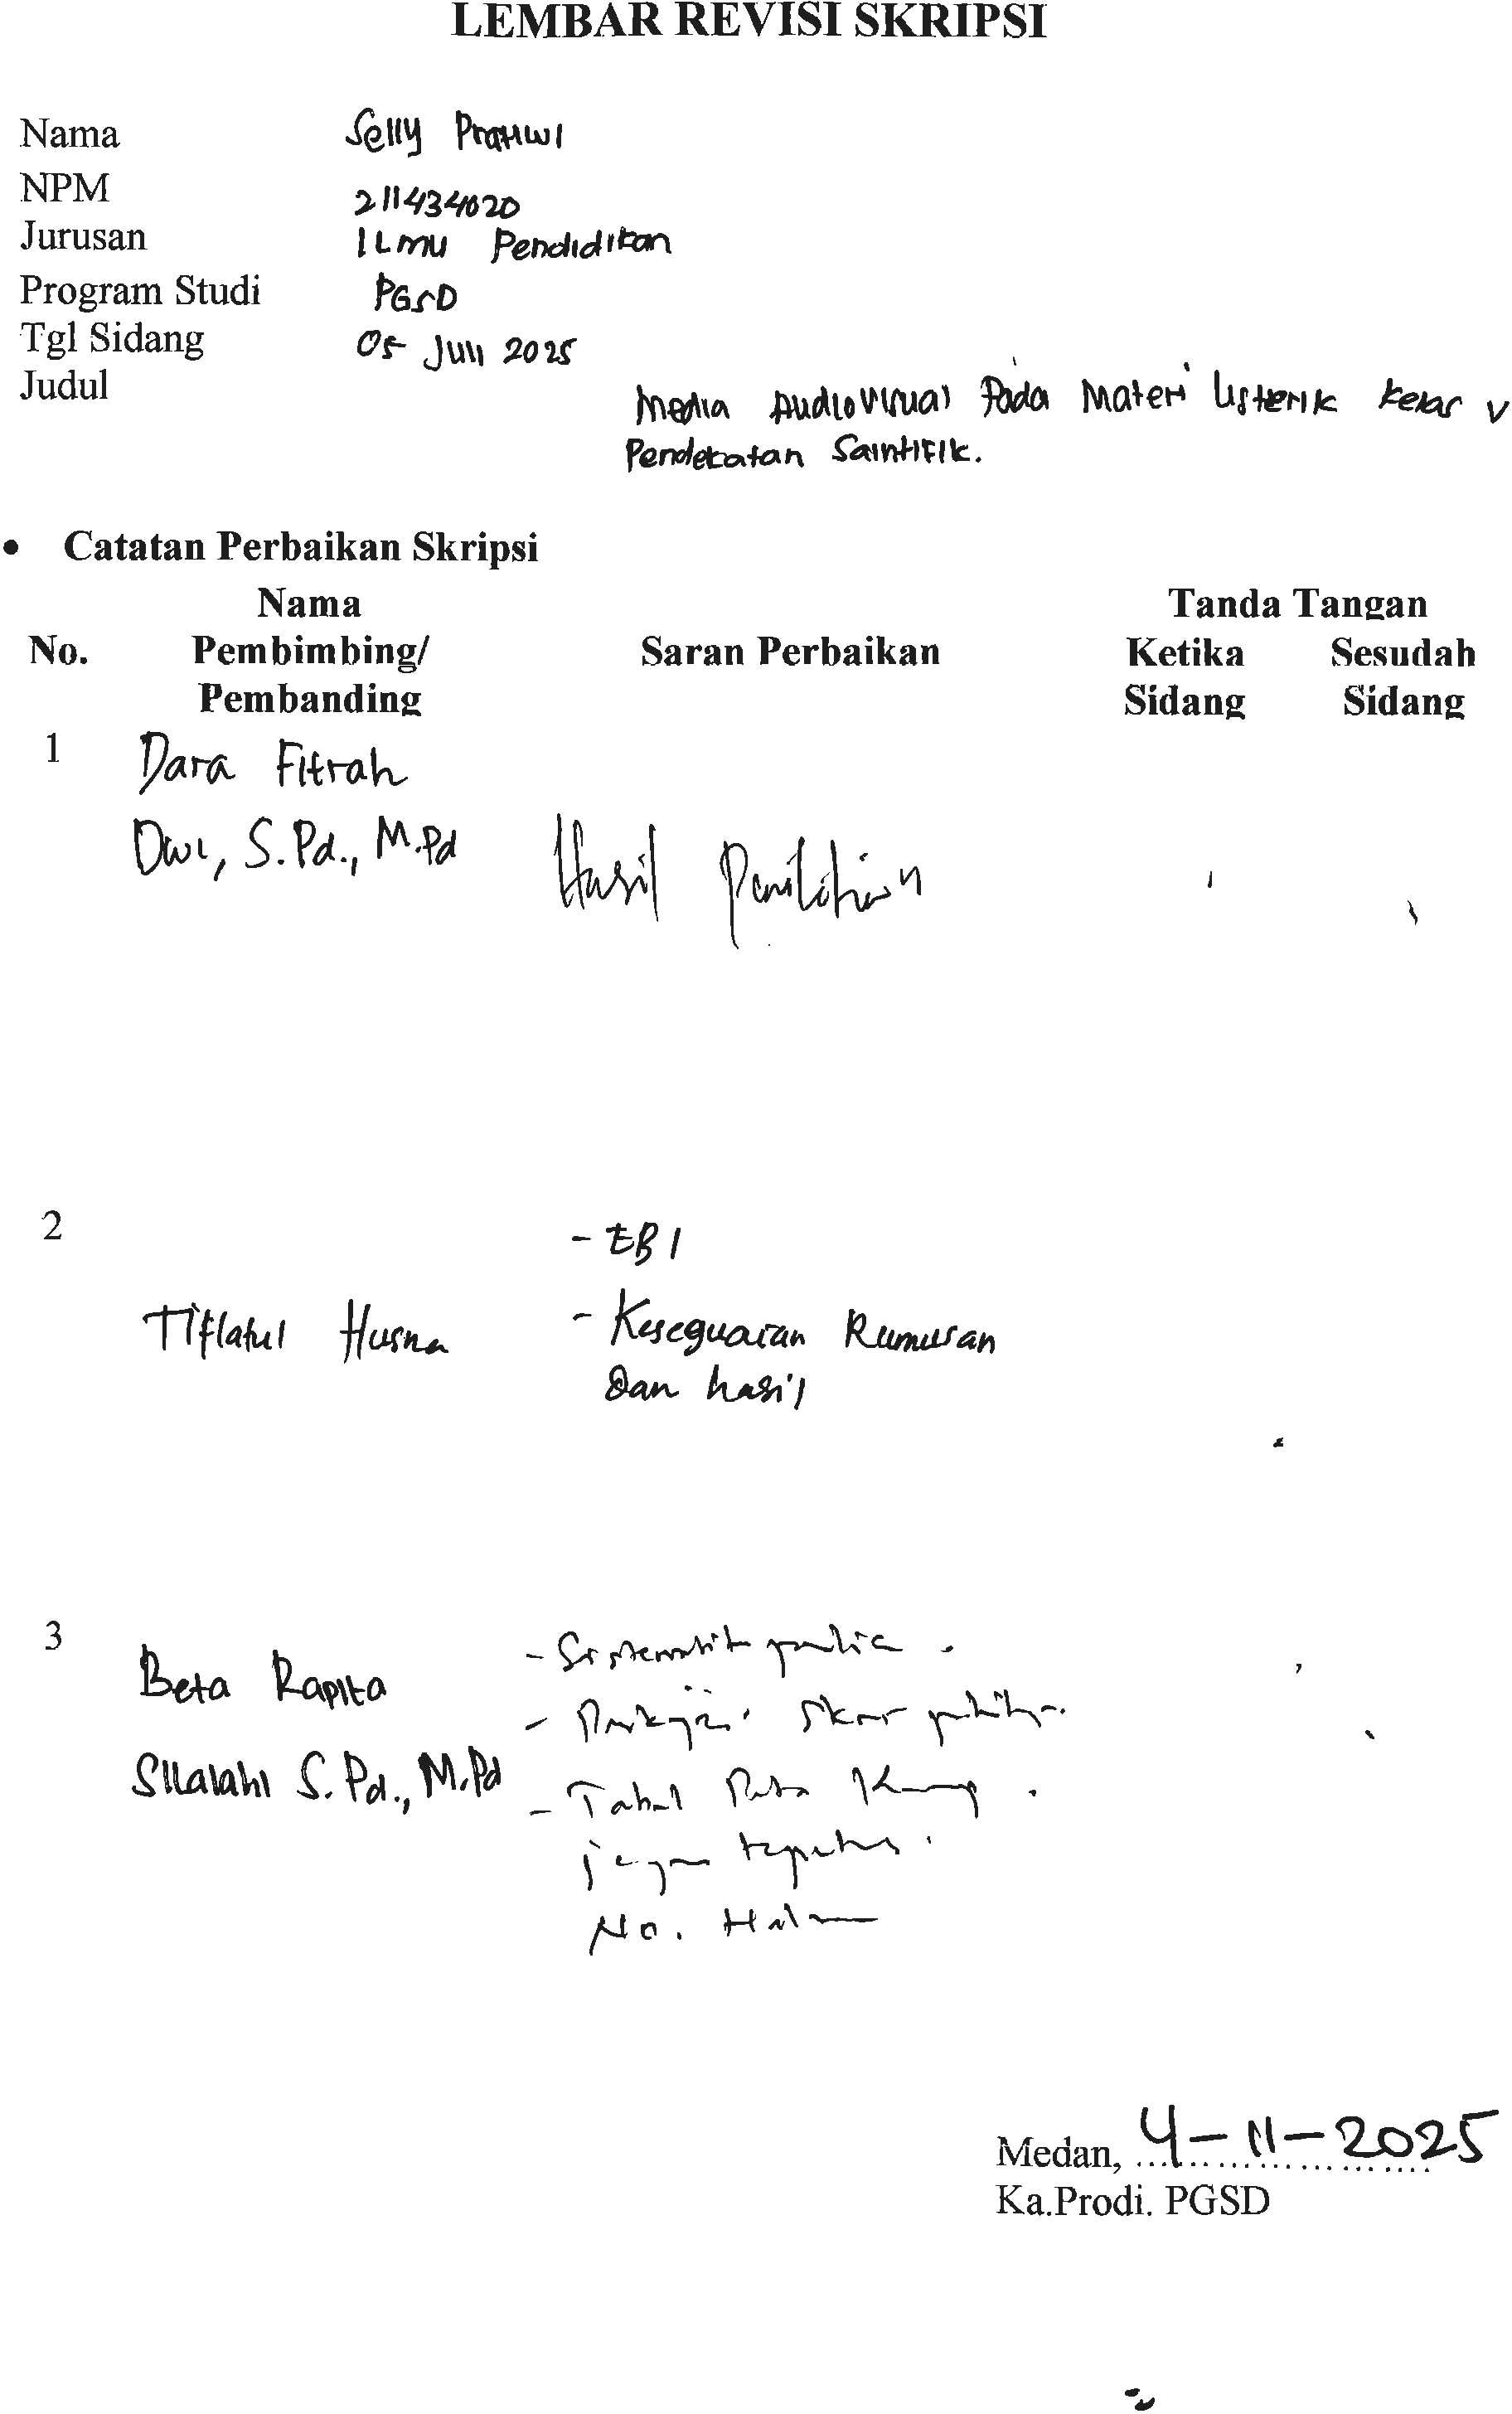 LEMBAR REVISI SKRIPSI
Nama Selly Pratiwi
NPM 211434020
Jurusan Ilmu Pendidikan
Program Studi PGSD
Tgl Sidang 05 Juli 2025
Judul
Media Audiovisual Pada Materi Listerik Kelas V
Pendekatan Saintifik.
• Catatan Perbaikan Skripsi
No. Nama Pembimbing/ Pembanding Saran Perbaikan Tanda Tangan Ketika Sidang Sesudah Sidang
1 Dara Fitrah
Dwi, S.Pd., M.Pd Hasil Penilitian
2 - EBI
Tiflatul Husna - Keseguaian Rumusan
dan hasil
3 Beta Rapita - Sistematik
Silalahi S.Pd., M.Pd - Tabel
No.
Medan, 4-11-2025
Ka.Prodi. PGSD